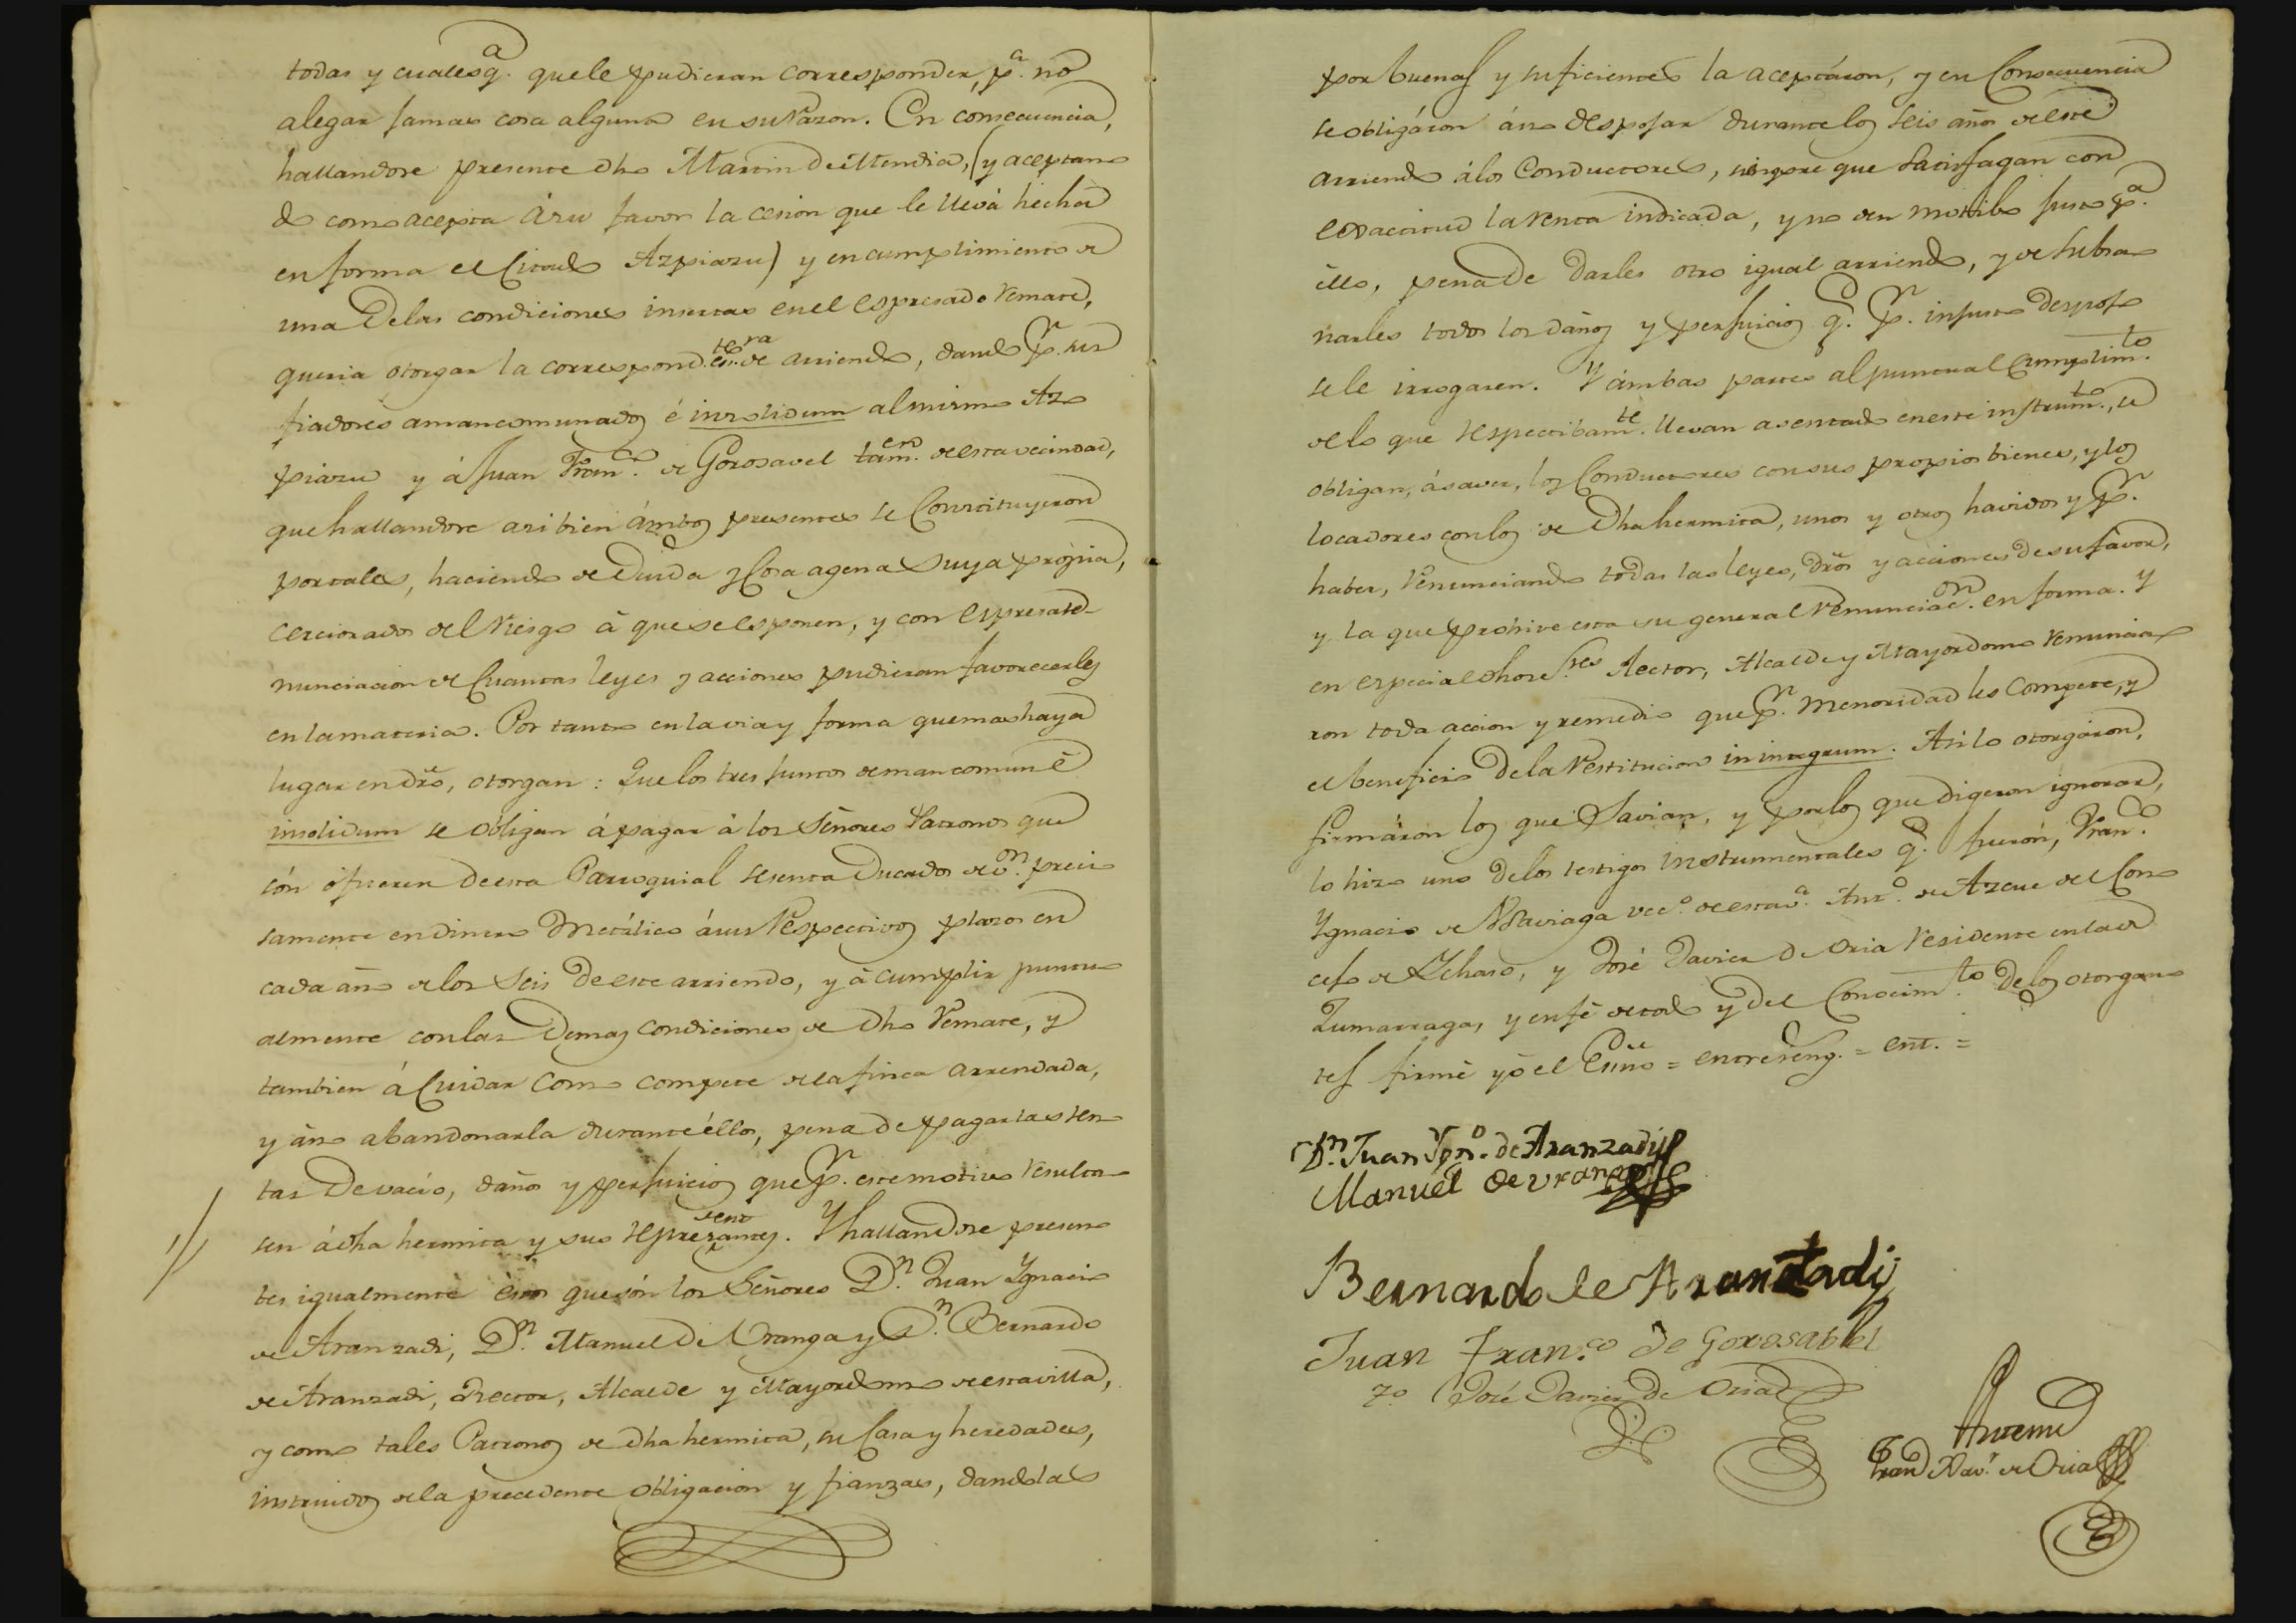 todas y cualesq.ª que le pudieran corresponder, p.ª no
alegar jamas cosa alguna en su razon. En consecuencia,
hallandose presente dho Martin de Mendia, (y aceptan-
do como acepta á su favor la cesion que le llevá hecha
en forma el citado Azpiazu) y en cumplimiento de
una de las condiciones insertas en el espresado remate,
queria otorgar la correspond.te es.ra de arriendo, dando p.r sus
fiadores amancomunados é insolidum al mismo Az-
piazu y á Juan Fran.co de Gorosavel tam.en de esta vecindad,
que hallandose asi bien ámbos presentes se constituyeron
por tales, haciendo de deuda y cosa agena suya própria,
cerciorados del riesgo á que se esponen, y con espresa re-
nunciacion de cuantas leyes y acciones pudieran favorecerles
en la materia. Por tanto en la via y forma que mas haya
lugar en dro, otorgan: Que los tres juntos de mancomun é
insolidum se obligan á pagar á los Señores Patronos que
són ó fueren de esta Parroquial sesenta Ducados de v.on preci-
samente en dinero Metálico á sus respectivos plazos en
cada año de los seis de este arriendo, y á cumplir puntu-
almente con las demas condiciones de dho remate, y
tambien á cuidar como compete de la finca arrendada,
y á no abandonarla durante éllos, pena de pagar las ren-
tas de vacio, daños y perjuicios que p.r este motivo resulta-
sen á dha hermita y sus represantes. Y hallandose presen-
sent
tes igualmente éstos que són los Señores D.n Juan Ygnacio
de Aranzadi, D.n Manuel de Uranga y D.n Bernardo
de Aranzadi, Rector, Alcalde y Mayordomo de esta villa,
y como tales Patronos de dha hermita, su Casa y heredades,
instruidos de la precedente obligacion y fianzas, dandolas
por buenas y suficientes la aceptáron, y en consecuencia
se obligáron á no despojar durante los seis años de este
arriendo á los Conductores, siempre que satisfagan con
exactitud la renta indicada, y no den motibo justo p.ª
ello, pena de darles otro igual arriendo, y de subsa-
narles todos los daños y perjuicios q.e p.r injusto despojo
se le irrogaren. Y ámbas partes al puntual cumplim.to
de lo que respectibam.te llevan asentado en este instrum.to, se
obligan, á saver, los Conductores con sus propios bienes, y los
locadores con los de dha hermita, unos y otros havidos y p.r
haber, renunciando todas las leyes, dros y acciones de su favor,
y la que prohive esta su general renunciac.on en forma. Y
en especial dhos S.res Rector, Alcalde y Mayordomo renuncia-
ron toda accion y remedio que p.r menoridad les compete, y
el beneficio de la restitucion in integrum. Asi lo otorgáron,
firmáron los que savian, y por los que digeron ignorar,
lo hizo uno de los testigos instrumentales q.e fuerón, Fran.co
Ygnacio de Aldaviaga vec.o de esta v.ª Ant.o de Azcue del Con-
cejo de Ychaso, y José Javier de Oria residente en la de
Zumarraga, y en fé de todo y del conocim.to de los otorgan-
tes firmé yo el Essno = entrereng. = ent. =
D.n Juan Ygn.o de Aranzadi
Manuel de Uranga
Bernardo de Aranzadi
Juan Fran.co de Gorosabel
t.o José Javier de Oria
Antemi
Fran.co Xav.r de Oria